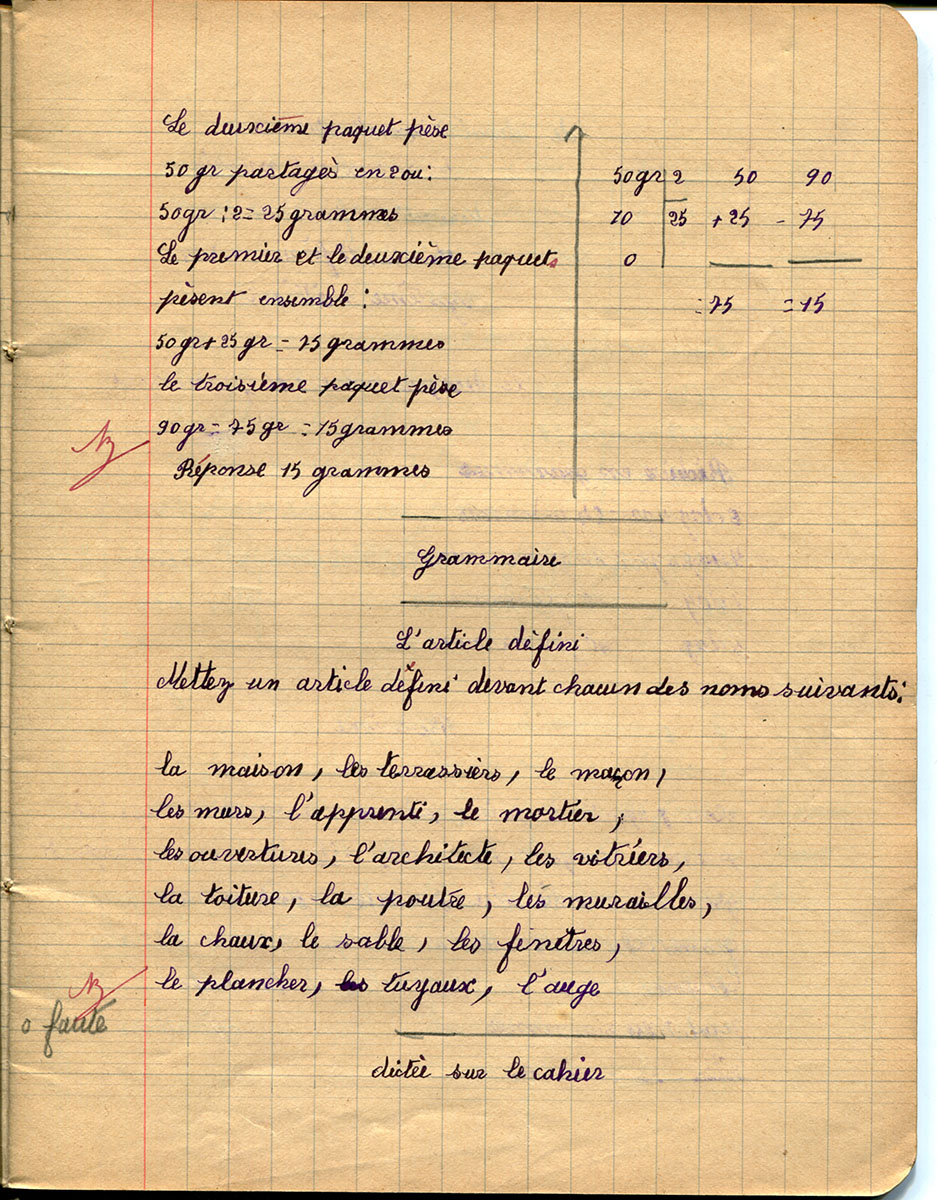 Le deuxième paquet pèse
50 gr partagès en 2 ou :
50gr : 2 = 25 grammes
Le premier et le deuxième paquets
pèsent ensemble :
50 gr + 25 gr = 75 grammes
le troisième paquet pèse
90 gr = 75 gr = 15 grammes
Réponse 15 grammes
50gr 2 50 90
10 25 + 25 - 75
0
= 75 = 15
Grammaire
L'article dèfini
Mettez un article défini devant chacun des noms suivants :
la maison, les terrassiers, le maçon,
les murs, l'apprenti, le mortier,
les ouvertures, l'architecte, les vitriers,
la toiture, la poutre, les murailles,
la chaux, le sable, les fenêtres,
le plancher, les tuyaux, l'auge
0 faute
dictèe sur le cahier